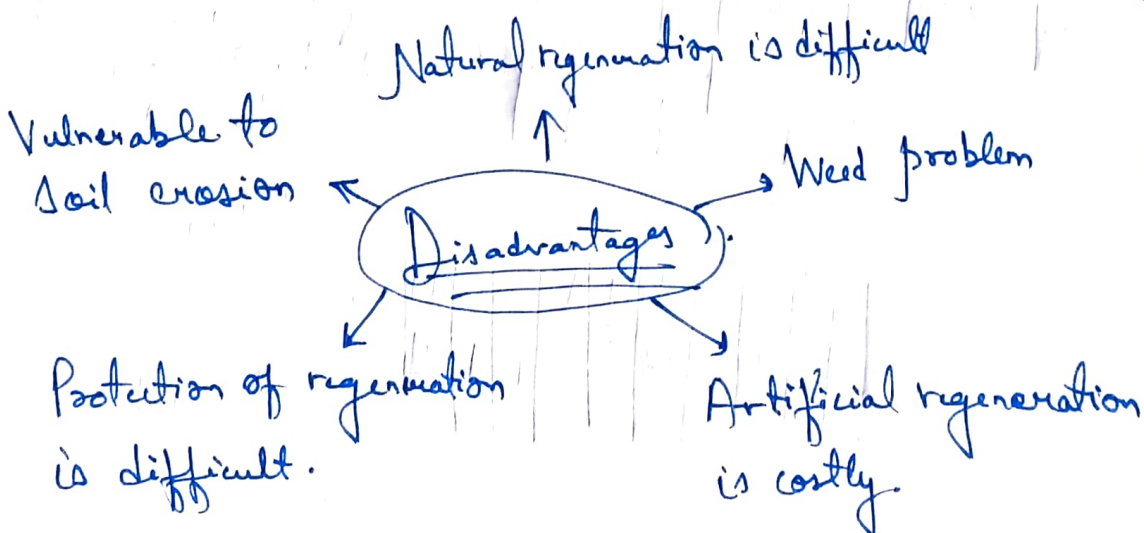 Natural regeneration is difficult
Vulnerable to
soil erosion
Weed problem
Disadvantages
Protection of regeneration
is difficult.
Artificial regeneration
is costly.